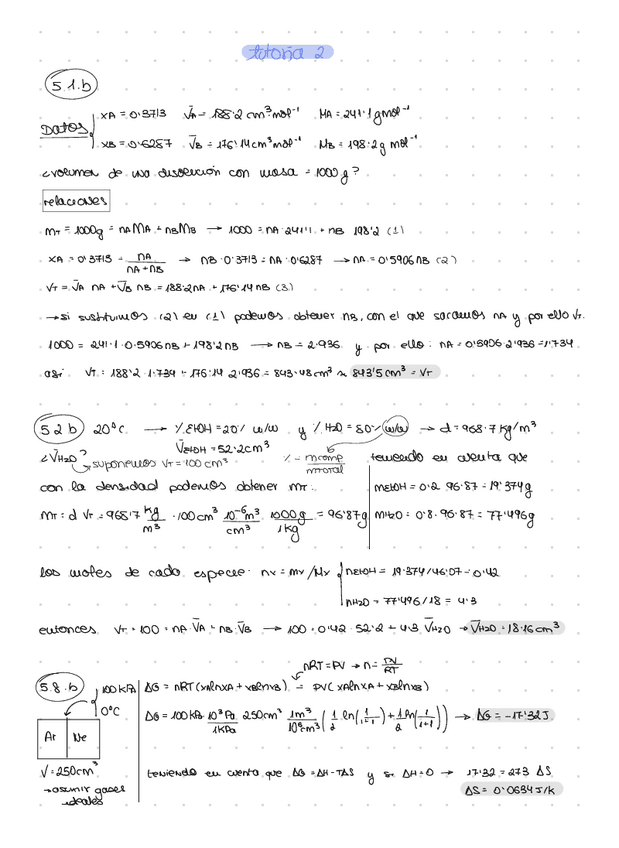 tutoria 2
5.1.b
Datos
xA = 0'3713 V̄A = 188'2 cm³mol⁻¹ MA = 241'1 gmol⁻¹
xB = 0'6287 V̄B = 176'14cm³mol⁻¹ MB = 198'2g mol⁻¹
¿volumen de una disolución con masa = 1000g?
relaciones
mT = 1000g = nAMA + nBMB → 1000 = nA·241'1 + nB 198'2 (1)
xA = 0'3713 = nA/(nA+nB) → nB·0'3713 = nA·0'6287 → nA = 0'5906nB (2)
VT = V̄A nA + V̄B nB = 188'2nA + 176'14nB (3)
→ si sustituimos (2) en (1) podemos obtener nB, con el que sacamos nA y por ello VT.
1000 = 241'1·0'5906nB + 198'2nB → nB = 2'936 y por ello: nA = 0'5906·2'936 = 1'734
así VT = 188'2·1'734 + 176'14·2'936 = 843'48cm³ ≈ 843'5cm³ = VT
5.2 b 20°C → % EtOH = 20% w/w y % H2O = 80% w/w → d = 968'7 kg/m³
V̄EtOH = 52'2cm³
¿V̄H2O? suponemos VT = 100cm³
% = mcomp/mtotal
teniendo en cuenta que
con la densidad podemos obtener mT:
mEtOH = 0'2·96'87 = 19'374g
mT = d·VT = 968'7 kg/m³ · 100cm³ · 10⁻⁶m³/cm³ · 1000g/1kg = 96'87g
mH2O = 0'8·96'87 = 77'496g
los moles de cada especie: nx = mx/Mx
nEtOH = 19'374/46'07 = 0'42
nH2O = 77'496/18 = 4'3
entonces VT = 100 = nA·V̄A + nB·V̄B → 100 = 0'42·52'2 + 4'3·V̄H2O → V̄H2O = 18'16cm³
nRT = PV → n = PV/RT
5.8.b
100kPa
0°C
Ar Ne
V = 250cm³
→ asumir gases ideales
ΔG = nRT(xAlnxA + xBlnxB) = PV(xAlnxA + xBlnxB)
ΔG = 100kPa · 10³Pa/1kPa · 250cm³ · 1m³/10⁶cm³ (1/2 ln(1/1+1) + 1/2 ln(1/1+1)) → ΔG = -17'32J
teniendo en cuenta que ΔG = ΔH-TΔS y si ΔH = 0 → 17'32 = 273 ΔS
ΔS = 0'0634J/K